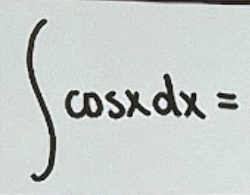 ∫cosxdx=